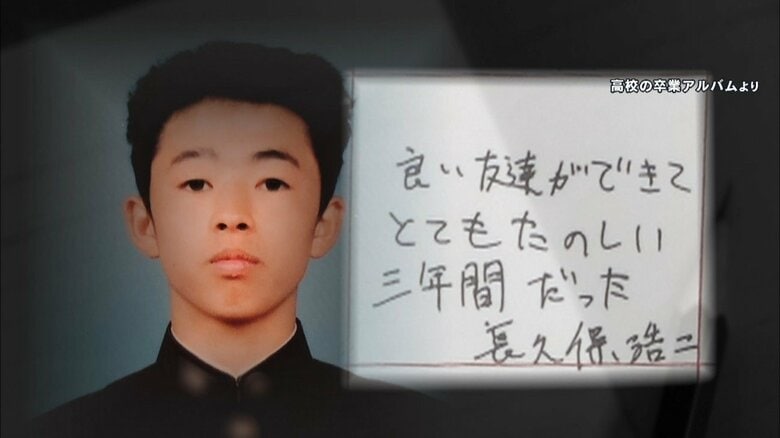 高校の卒業アルバムより
良い友達ができて
とてもたのしい
三年間だった
長久保、浩二